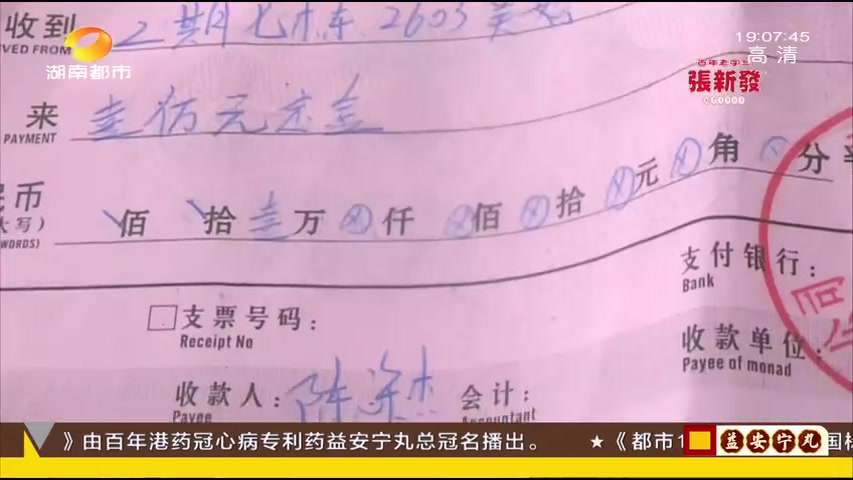 19:07:45
高清
湖南都市
百年老字号
張新發
收到 2期七栋 2603
VED FROM
来
PAYMENT
民币
大写)
WORDS)
佰 拾 壹万 ⊗仟 ⊗佰 ⊗拾 ⊗元 ⊗角 分
支付银行：
Bank
□支票号码：
Receipt No
收款单位：
Payee of monad
收款人：
Payee
会计：
Accountant
》由百年港药冠心病专利药益安宁丸总冠名播出。 ★《都市1
益安宁丸
国标